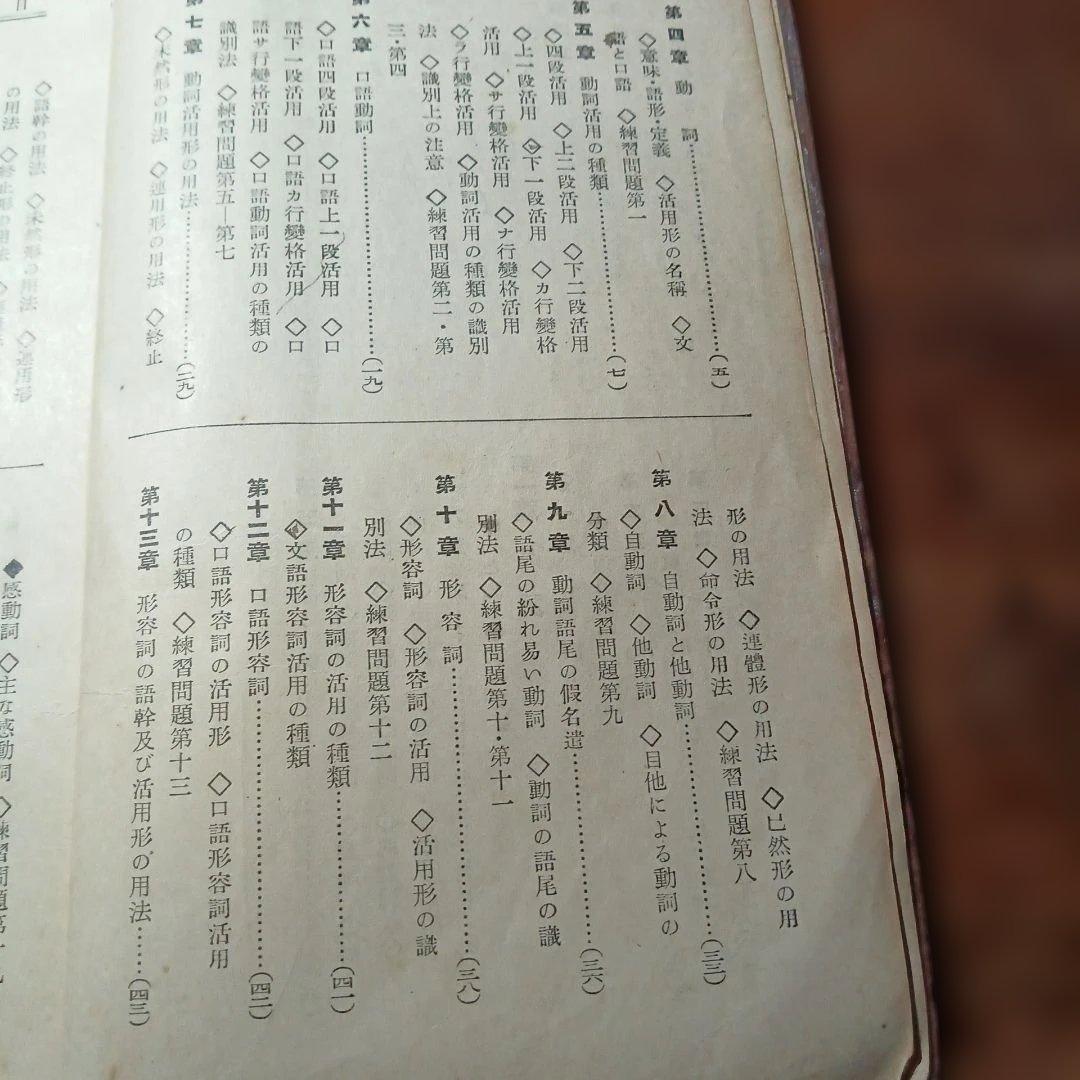 第四章 動詞……(五)
◇意味・語形・定義 ◇活用形の名稱 ◇文
語と口語 ◇練習問題第一
第五章 動詞活用の種類……(七)
◇四段活用 ◇上二段活用 ◇下二段活用
◇上一段活用 ◇下一段活用 ◇カ行變格
活用 ◇サ行變格活用 ◇ナ行變格活用
◇ラ行變格活用 ◇動詞活用の種類の識別
法 ◇識別上の注意 ◇練習問題第二・第
三・第四
第六章 口語動詞……(一九)
◇口語四段活用 ◇口語上一段活用 ◇口
語下一段活用 ◇口語カ行變格活用 ◇口
語サ行變格活用 ◇口語動詞活用の種類の
識別法 ◇練習問題第五―第七
第七章 動詞活用形の用法……(二九)
◇未然形の用法 ◇連用形の用法 ◇終止
形の用法 ◇連體形の用法 ◇已然形の用
法 ◇命令形の用法 ◇練習問題第八
第八章 自動詞と他動詞……(三三)
◇自動詞 ◇他動詞 ◇自他による動詞の
分類 ◇練習問題第九
第九章 動詞語尾の假名遣……(三六)
◇語尾の紛れ易い動詞 ◇動詞の語尾の識
別法 ◇練習問題第十・第十一
第十章 形容詞……(三八)
◇形容詞 ◇形容詞の活用 ◇活用形の識
別法 ◇練習問題第十二
第十一章 形容詞の活用の種類……(四一)
◇文語形容詞活用の種類
第十二章 口語形容詞……(四二)
◇口語形容詞の活用形 ◇口語形容詞活用
の種類 ◇練習問題第十三
第十三章 形容詞の語幹及び活用形の用法……(四三)
◇語幹の用法 ◇未然形の用法 ◇連用形
の用法 ◇終止形の用法
◆感動詞 ◇主な感動詞